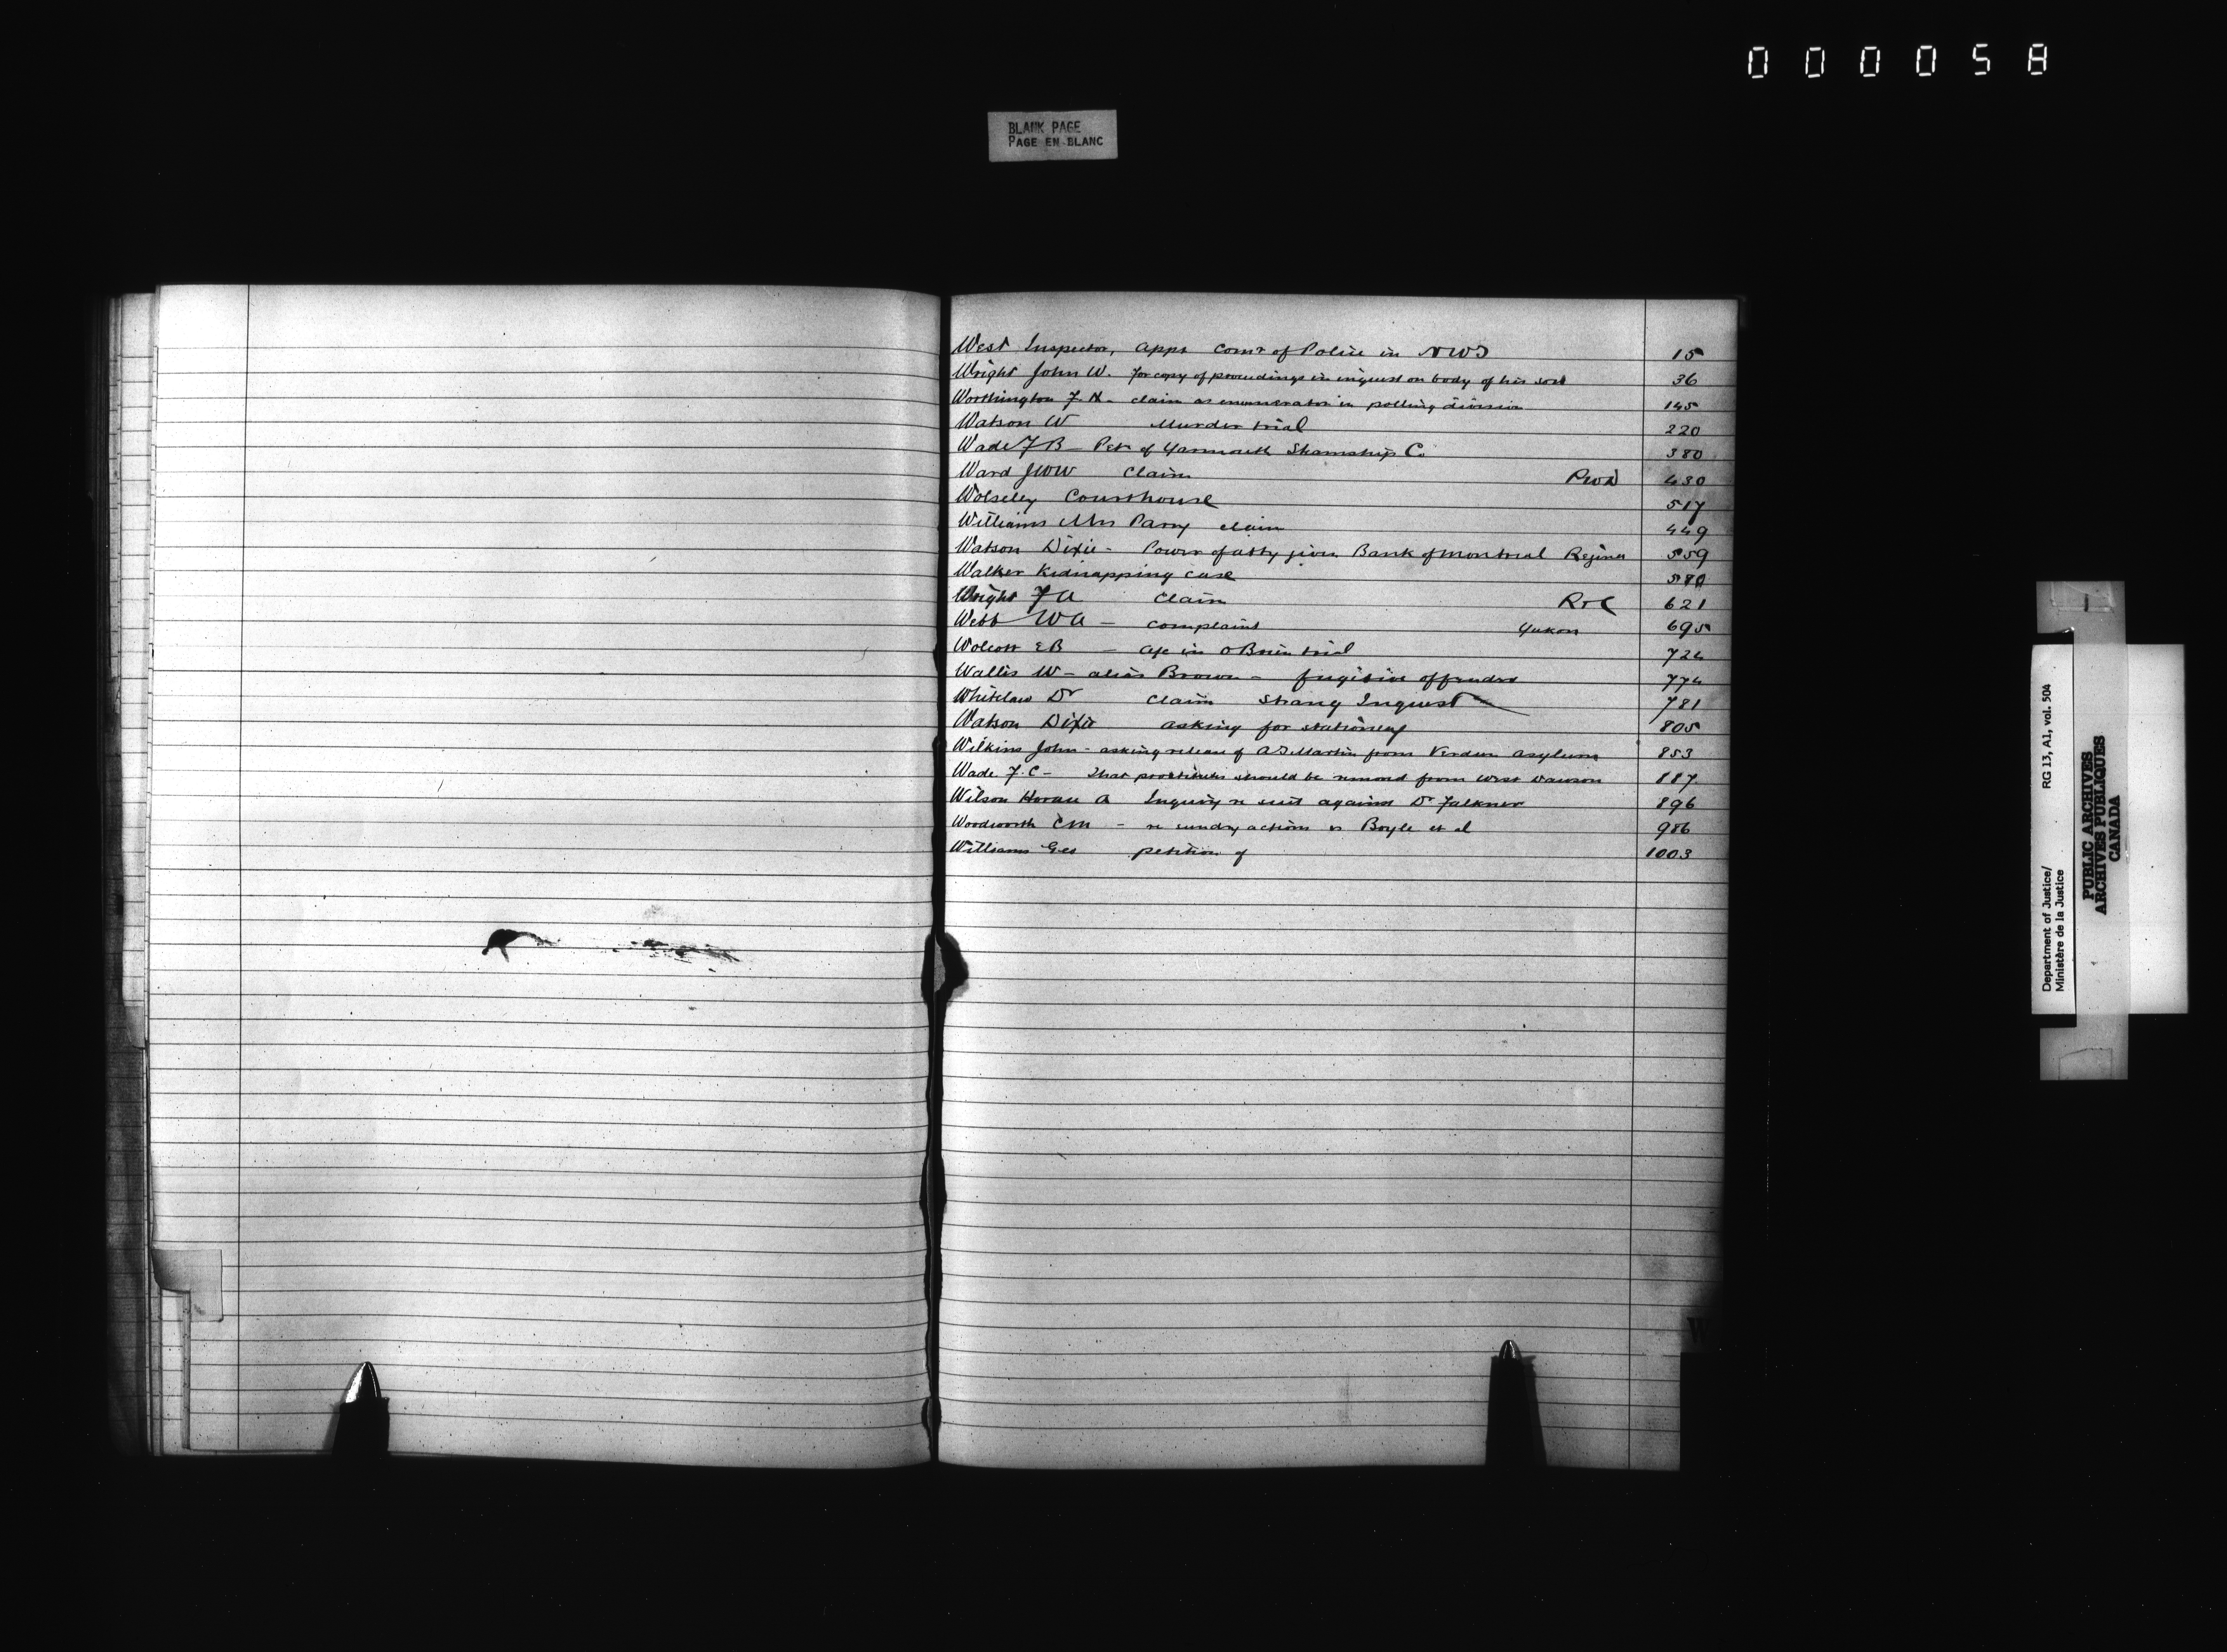 000058
BLANK PAGE
PAGE EN BLANC
West Inspector, appt Comr of Police in NWT 15
Wright John W. for copy of proceedings in inquest on body of his son 36
Worthington F. H - claim as enumerator in polling division 145
Watson W Murder trial 220
Wade F B - Petn of Yarmouth Steamship Co 380
Ward JWW Claim PWD 430
Wolseley Courthouse 517
Williams Mrs Parry claim 449
Watson Dixie - Power of atty given Bank of Montreal Regina 559
Walker Kidnapping case 580
Wright F A Claim R & C 621
Webb WA - complaint Yukon 695
Wolcott E B - a/c in O'Brien trial 724
Wallis W - alias Brown - fugitive offender 774
Whitelaw Dr Claim Strang Inquest 781
Watson Dixie asking for stationery 805
Wilkins John - asking release of A D Martin from Verdun asylum 853
Wade F. C - That prostitutes should be removed from West Dawson 887
Wilson Horace A Inquiry re suit against Dr Falkner 896
Woodworth CM - re sundry actions vs Boyle et al 986
Williams Geo petition of 1003
W
Department of Justice/ RG 13, A1, vol. 504
Ministère de la Justice
PUBLIC ARCHIVES
ARCHIVES PUBLIQUES
CANADA